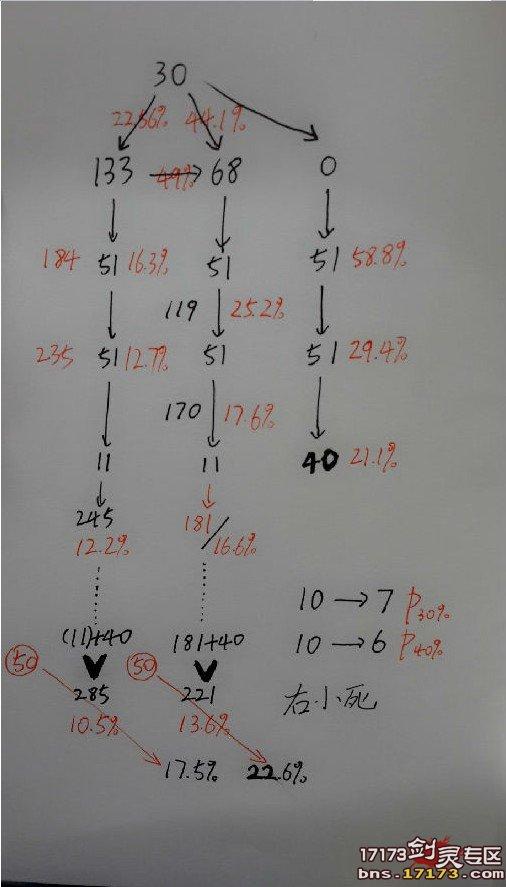 30
22.56% 44.1%
133 49% 68 0
184 51 16.3% 51 51 58.8%
119 25.2%
235 51 12.7% 51 51 29.4%
170 17.6%
11 11 40 21.1%
245 181
12.2% 16.6%
10 → 7 P30%
(11)+40 181+40 10 → 6 P40%
50 50
285 221 右小死
10.5% 13.6%
17.5% 22.6%
17173剑灵专区
bns.17173.com